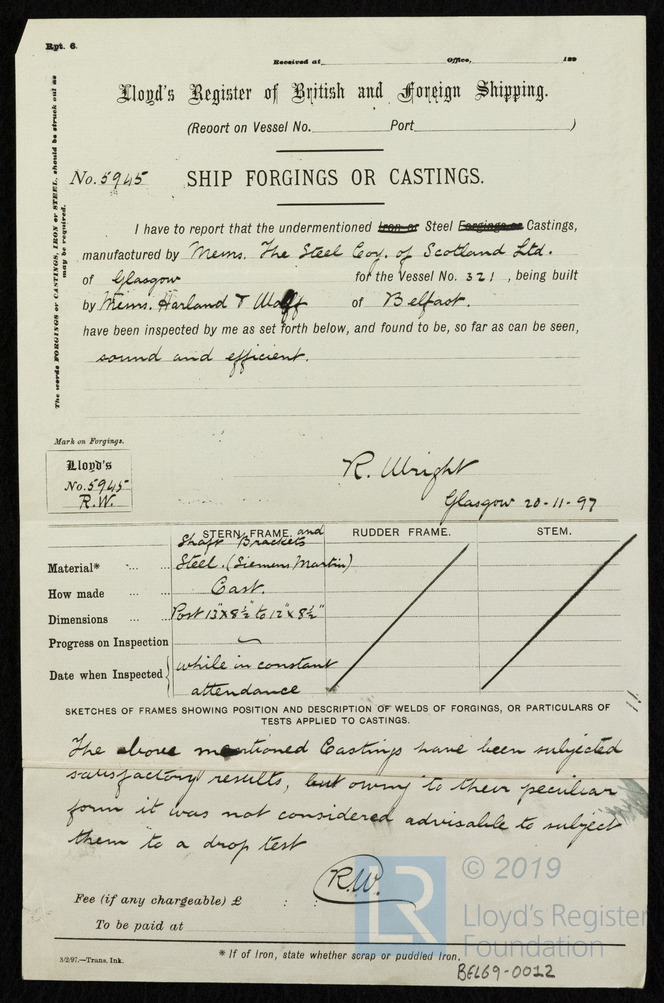 Rpt. 6.
Received at Office, 189
Lloyd's Register of British and Foreign Shipping.
(Report on Vessel No. Port )
The words FORGINGS or CASTINGS, IRON or STEEL, should be struck out as
may be required.
No. 5945 SHIP FORGINGS OR CASTINGS.
I have to report that the undermentioned Iron or Steel Forgings or Castings,
manufactured by Messrs. The Steel Coy. of Scotland Ltd.
of Glasgow for the Vessel No. 321, being built
by Messrs. Harland & Wolff of Belfast.
have been inspected by me as set forth below, and found to be, so far as can be seen,
sound and efficient.
Mark on Forgings.
Lloyd's
No. 5945
R.W.
R. Wright
Glasgow 20-11-97
STERN FRAME. and RUDDER FRAME. STEM.
Shaft Brackets
Material* ... ... Steel. (Siemens Martin)
How made ... ... Cast.
Dimensions ... ... Post 13"x8½" to 12"x8½"
Progress on Inspection
Date when Inspected while in constant
attendance
SKETCHES OF FRAMES SHOWING POSITION AND DESCRIPTION OF WELDS OF FORGINGS, OR PARTICULARS OF
TESTS APPLIED TO CASTINGS.
The above mentioned Castings have been subjected
satisfactory results, but owing to their peculiar
form it was not considered advisable to subject
them to a drop test
R.W.
Fee (if any chargeable) £ : :
To be paid at
* If of Iron, state whether scrap or puddled Iron.
3/2/97.—Trans. Ink.
BEL69-0012
LR
© 2019
Lloyd's Register
Foundation